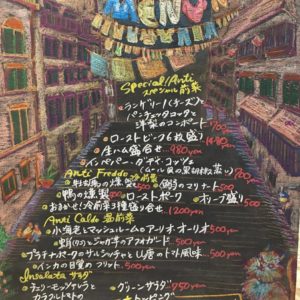 MENU
Special Anti
スペシャル前菜
ランゲリーノ(チーズ)と
パンチェッタコッタと
洋梨のコンポート 700
ローストビーフ6枚盛り 1480yen
生ハム盛合せ 980yen
インペパータ・ディ・コッツェ
(ムール貝の黒胡椒蒸し) 700
Anti Freddo 冷前菜
の燻製 500
のマリナート 500
鴨の燻製 ローストポーク オリーブ盛り 500
おまかせ!冷前菜3種盛り合せ 1200yen
Anti Caldo 温前菜
小海老とマッシュルームのアーリオ・オーリオ 500yen
とジャガ芋のアフォガート 500yen
プラチナポークのサルシッチャと豆のトマト風味 500yen
インカの目覚めのフリット 500yen
Insalata サラダ
チェリーモッツァレラと グリーンサラダ 750yen
カラフルトマトの トッピング